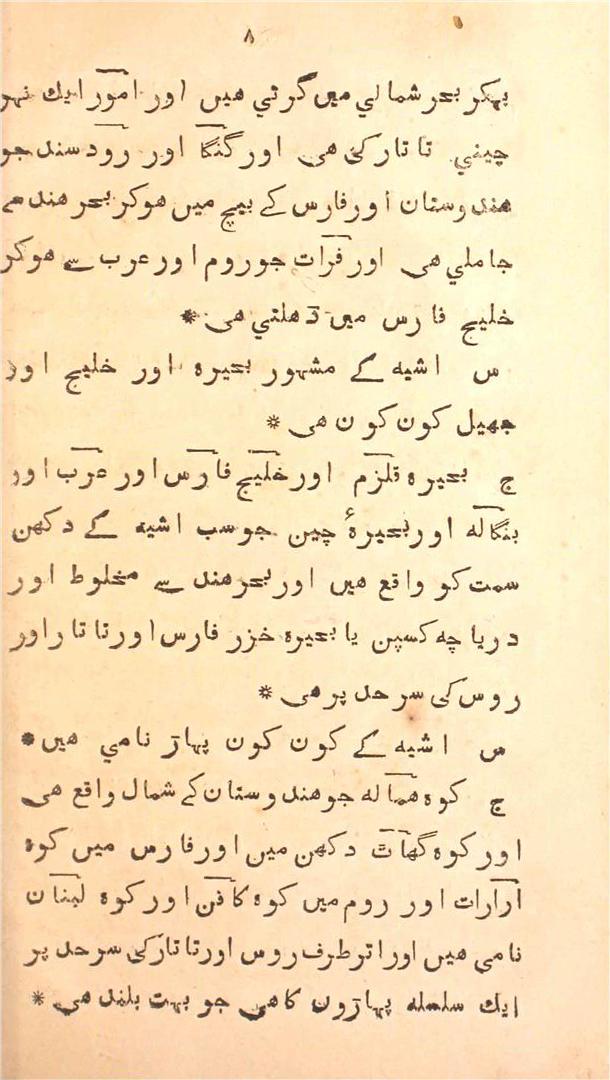 ۸
بہکر بحر شمالي میں گرتي هیں اور امور ایك نہر
چیني تاتار کی هی اور گنگا اور رود سند جو
هندوستان اور فارس کے بیچ میں هوکر بحر هند مے
جاملي هی اور فرات جو روم اور عرب سے هوکر
خلیج فارس میں ڈهلتي هی *
س اشیه کے مشہور بحیره اور خلیج اور
جهیل کون کون هی *
ج بحیره قلزم اور خلیج فارس اور عرب اور
بنگاله اور بحیرهٔ چین جو سب اشیه کے دکهن
سمت کو واقع هیں اور بحر هند سے مخلوط اور
دریاچه کسپن یا بحیره خزر فارس اور تاتار اور
روس کی سر حد پر هی *
س اشیه کے کون کون پہاڑ نامي هیں *
ج کوه هماله جو هندوستان کے شمال واقع هی
اور کوه گهاٹ دکهن میں اور فارس میں کوه
آرارات اور روم میں کوه کافن اور کوه لبنان
نامي هیں اور اتر طرف روس اور تاتار کی سر حد پر
ایك سلسله پہاڑون کا هی جو بہت بلند هی *